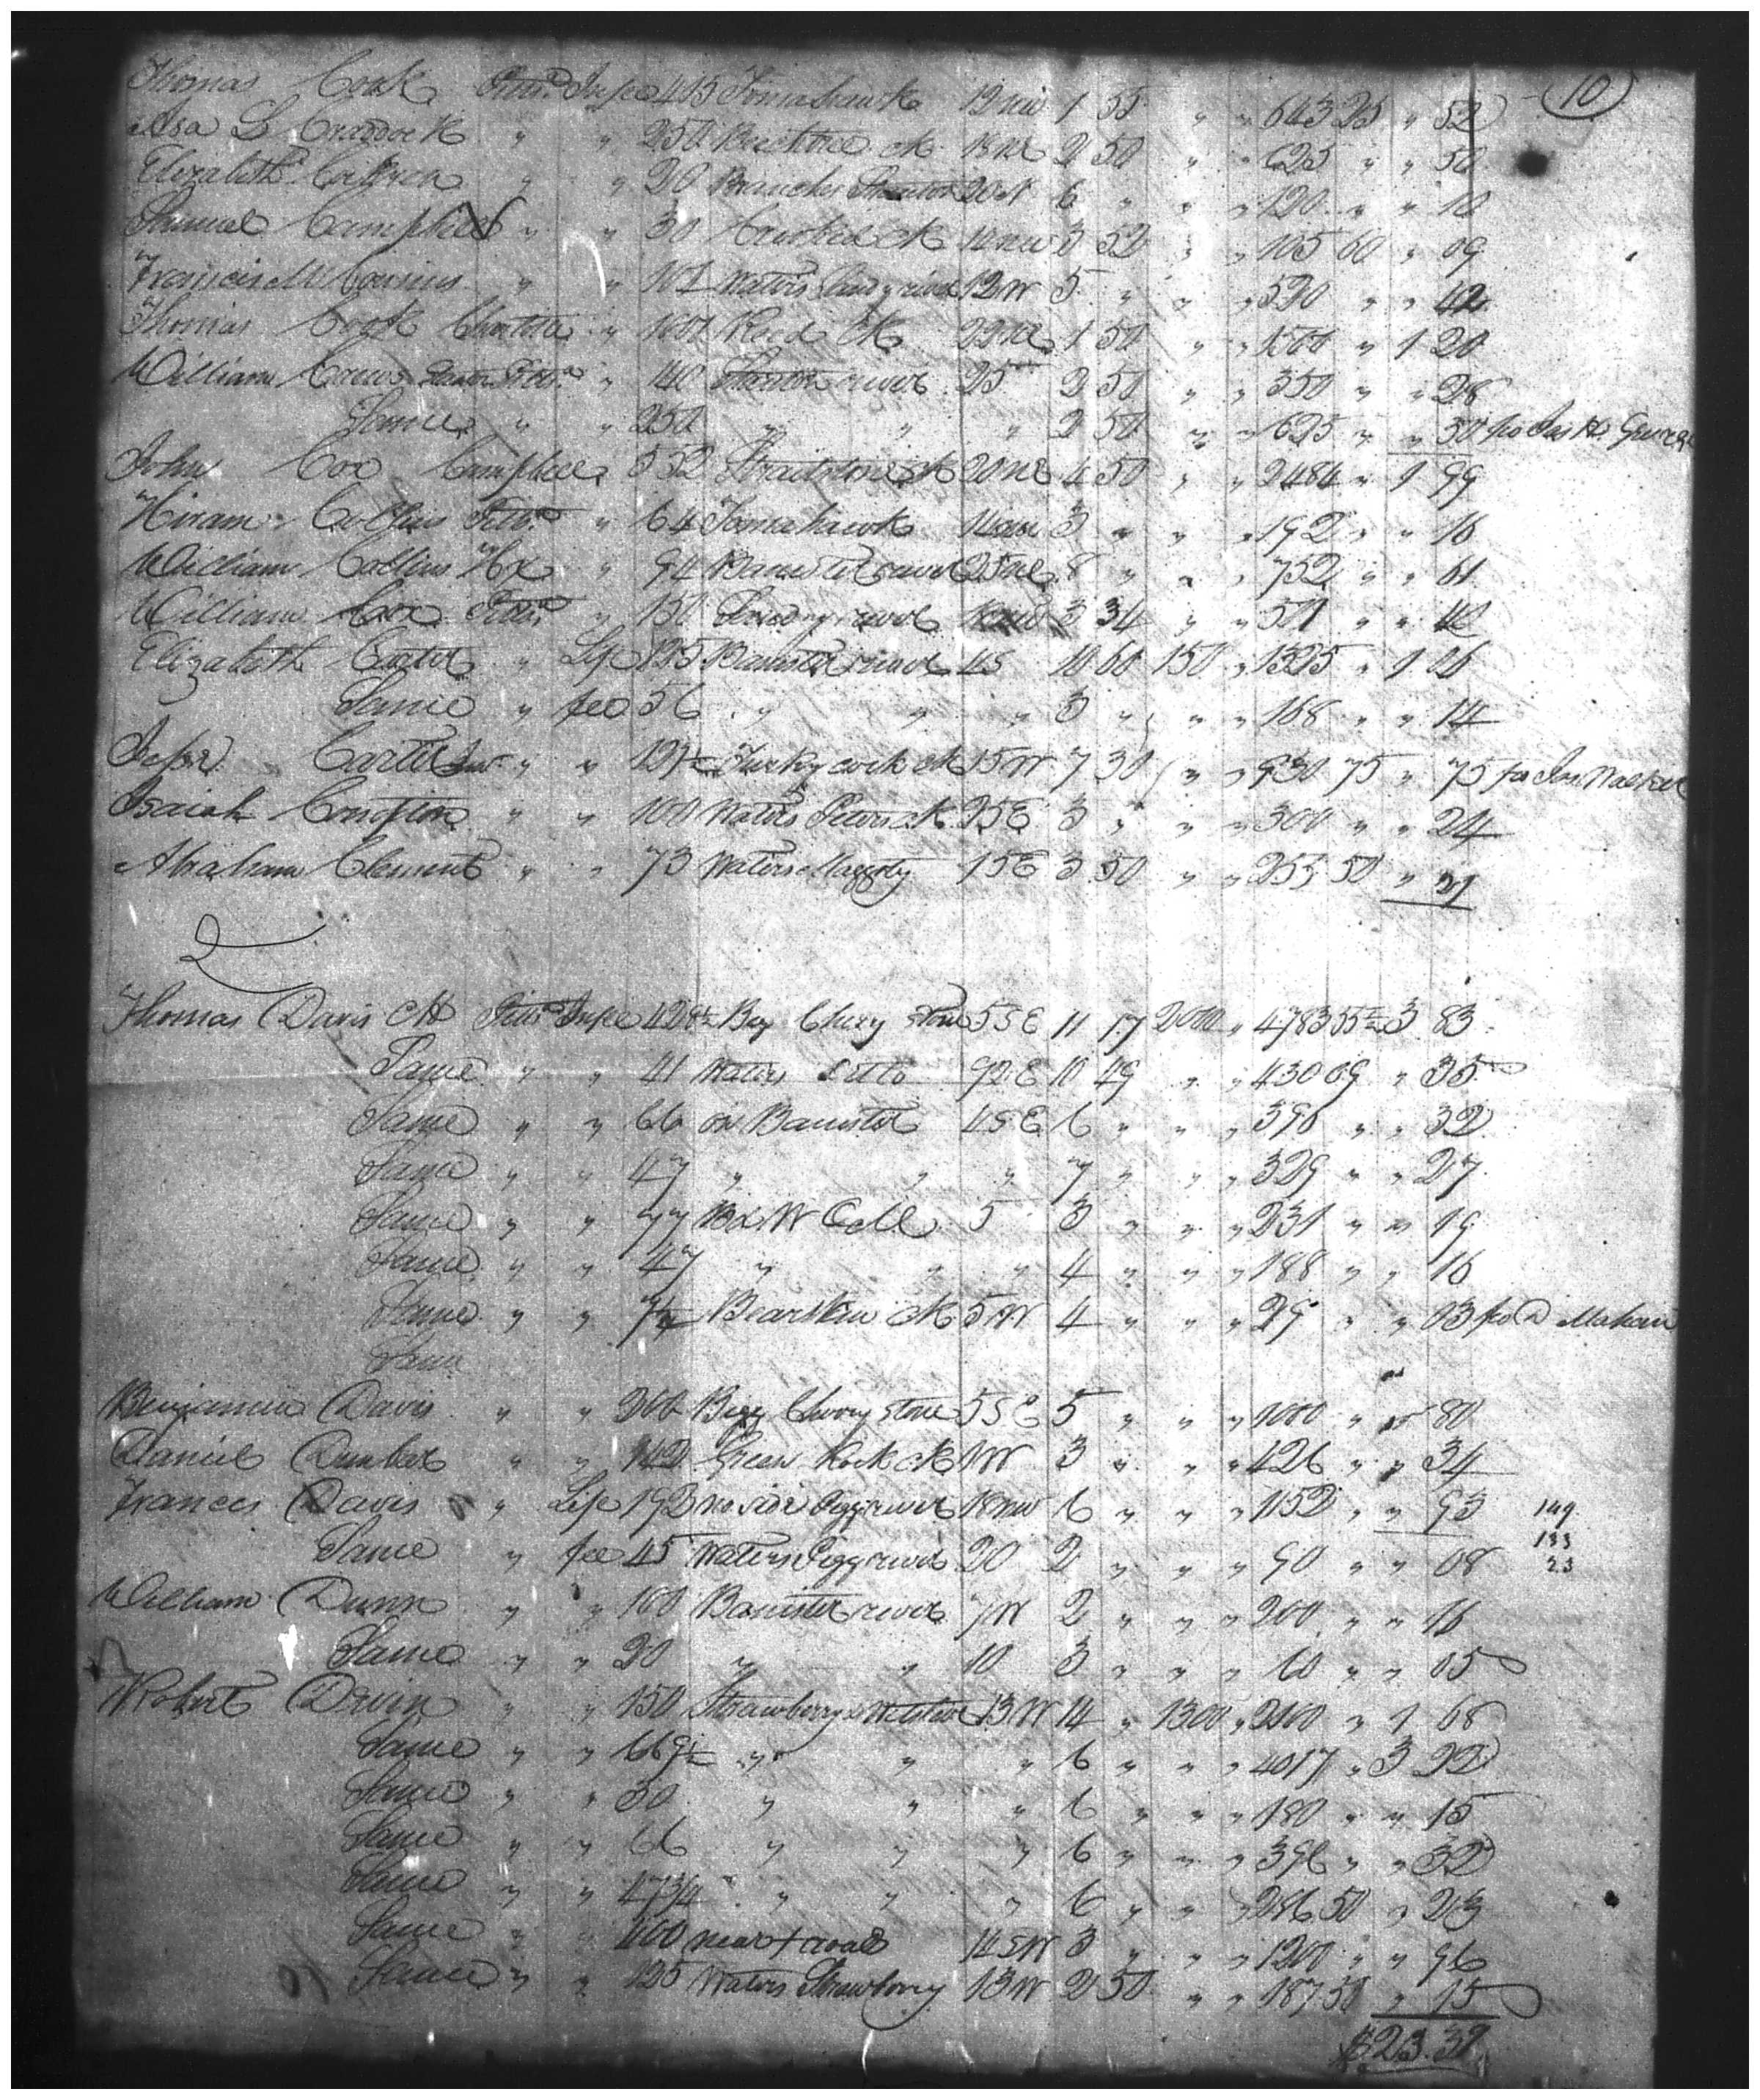 (10)
Thomas Cook Pittsa. In fee 415 Tomahawk 12 NW 1 55 " " 643 25 " 52
Asa L Craddock " " 250 Beechtree ck 18 NE 2 50 " " 625 " " 50
Elizabeth " " 20 Branches Staunton 20 N 6 " " " 120 " " 10
Samuel Campbell " " 30 Crooked ck NW 3 52 " " 105 60 " 09
Francis M Cousins " " Waters Sandy river 12 W 5 " " " 530 " " 42
Thomas Cook Charlotte " Reed ck 22 NE 1 50 " " 1500 " 1 20
William Crews Pittsa. " 140 Staunton river 25 2 50 " " 350 " " 28
Same " " 250 " " " 2 50 " " 625 " " 50 fro Jas H. George
John Cox Campbell 552 Straitstone ck 20 NE 4 50 " " 2484 " 1 99
Hiram Collins Pittsa. " 64 Tomahawk 3 " " " 192 " " 16
William Collins Hx " 94 Banister river 25 NE 8 " " " 752 " " 61
William Cox Pittsa. " 150 Sandy river 3 34 " " 501 " " 40
Elizabeth Carter " Life 125 Banister river 4 S 10 60 150 " 1325 " 1 06
Same " fee 56 " " " 3 " " " 168 " " 14
Jesse Carter " " 127½ Turkey cock ck 15 W 7 30 " " 930 75 " 75 fro Jas Walker
Isaiah " " 100 Waters ck 25 E 3 " " " 300 " " 24
Abraham Clement " " 73 Waters Maggoty 15 E 3 50 " " 255 50 " 21
Thomas Davis CH Pittsa. In fee 428½ Big Chery stone 5 SE 11 17 2000 " 4783 55 " 3 83
Same " " 41 Waters Ditto 92 E 10 49 " " 430 09 " 35
Same " " 66 on Banister 4 SE 6 " " " 396 " " 32
Same " " 47 " " " 7 " " " 329 " " 27
Same " " 77 5 3 " " " 231 " " 19
Same " " 47 " " " 4 " " " 188 " " 16
Same " " 7¼ Bearskin ck 5 W 4 " " " 29 " " 03 fro D
Same
Benjamin Davis " " 200 Bigg Cherry stone 5 SE 5 " " " 1000 " " 80
Daniel Dunbar " " 142 Green Rock ck 1 W 3 " " " 426 " " 34
Frances Davis " Life 192 no side Pigg river 18 NW 6 " " " 1152 " " 93 149
Same " fee 45 Waters Pigg river 20 2 " " " 90 " " 08 133 23
William Dunn " " 100 Banister river 7 W 2 " " " 200 " " 16
Same " " 20 " " 10 3 " " " 60 " " 05
Robert Devin " " 150 Strawberry & Whetstone 13 W 14 " 1300 " 2100 " 1 68
Same " " 669½ " " " 6 " " " 4017 " 3 22
Same " " 30 " " " 6 " " " 180 " " 15
Same " " 66 " " " 6 " " " 396 " " 32
Same " " 47 3/4 " " " 6 " " " 286 50 " 23
Same " " 400 near + roads 14 SW 3 " " " 1200 " " 96
Same " " 125 Waters Strawberry 13 W 2 50 " " 187 50 " 15
$23.32